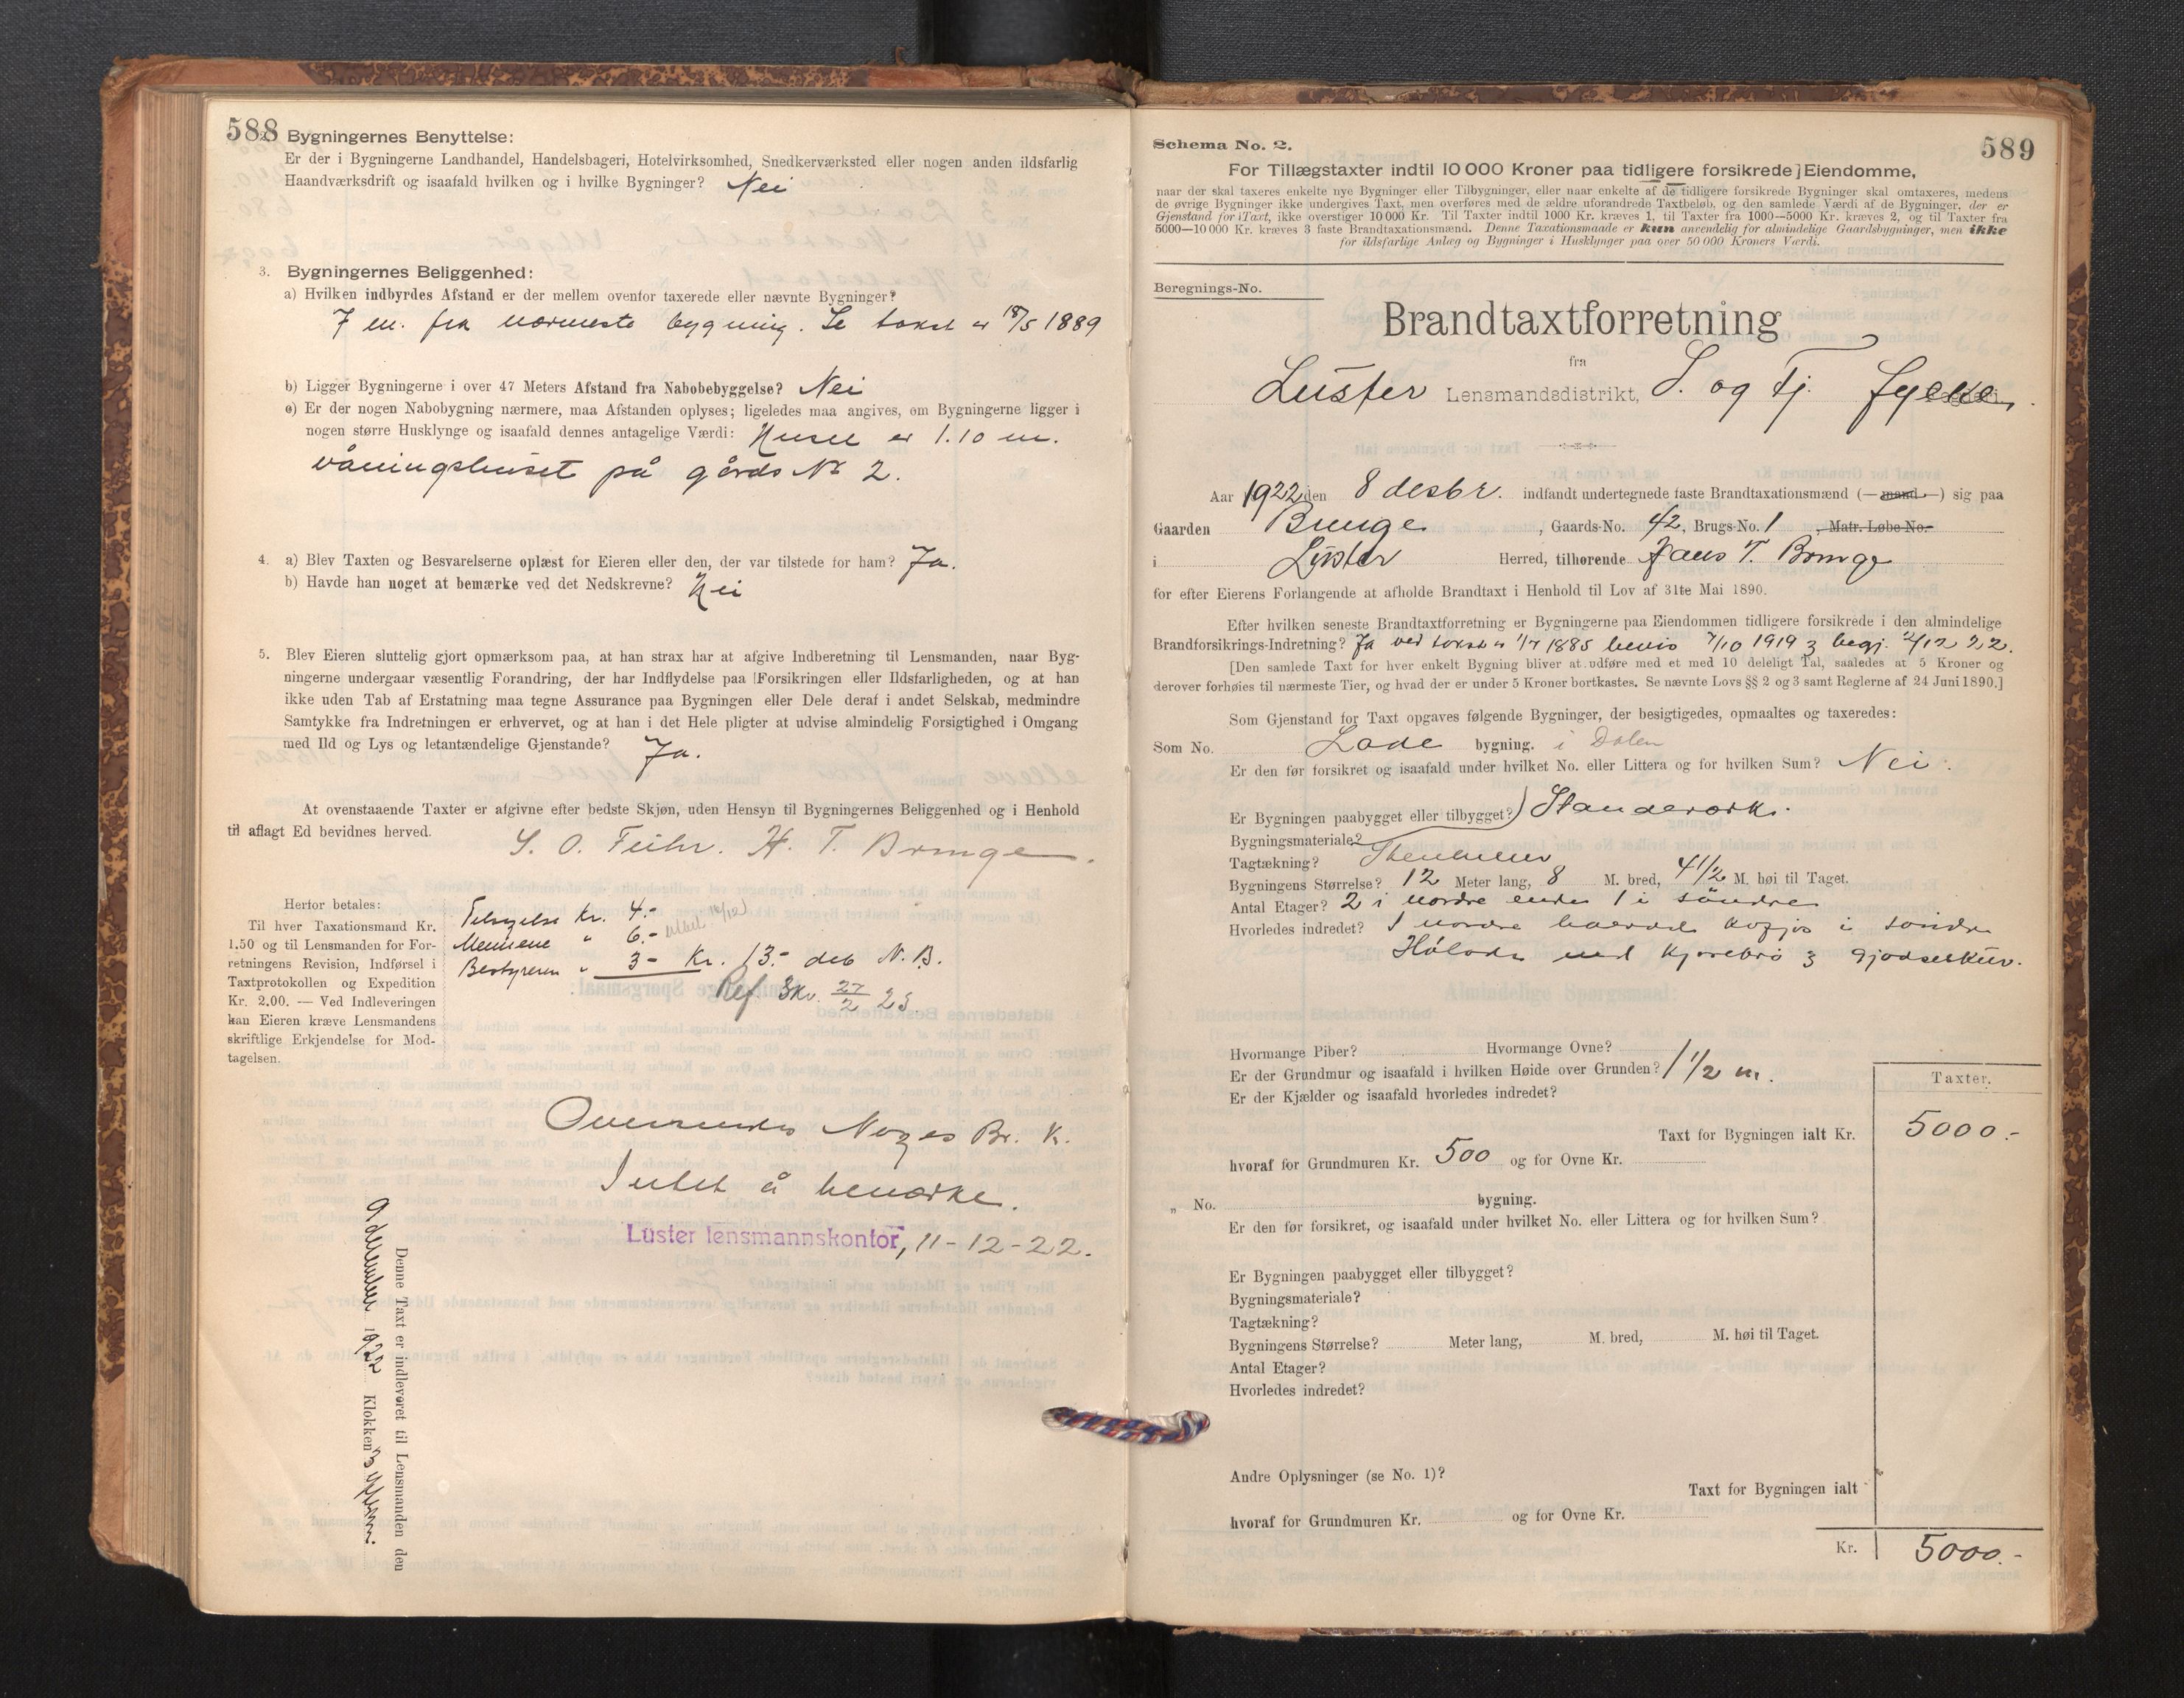 588
2. Bygningernes Benyttelse:
Er der i Bygningerne Landhandel, Handelsbageri, Hotelvirksomhed, Snedkerværksted eller nogen anden ildsfarlig
Haandværksdrift og isaafald hvilken og i hvilke Bygninger? Nei
3. Bygningernes Beliggenhed:
a) Hvilken indbyrdes Afstand er der mellem ovenfor taxerede eller nævnte Bygninger?
7 m. fra nærmeste bygning. Se takst 18/5 1889
b) Ligger Bygningerne i over 47 Meters Afstand fra Nabobebyggelse? Nei
c) Er der nogen Nabobygning nærmere, maa Afstanden oplyses; ligeledes maa angives, om Bygningerne ligger i
nogen større Husklynge og isaafald dennes antagelige Værdi: 1.10 m.
våningshuset på gårds No 2.
4. a) Blev Taxten og Besvarelserne oplæst for Eieren eller den, der var tilstede for ham? Ja.
b) Havde han noget at bemærke ved det Nedskrevne? Nei
5. Blev Eieren sluttelig gjort opmærksom paa, at han strax har at afgive Indberetning til Lensmanden, naar Byg-
ningerne undergaar væsentlig Forandring, der har Indflydelse paa Forsikringen eller Ildsfarligheden, og at han
ikke uden Tab af Erstatning maa tegne Assurance paa Bygningen eller Dele deraf i andet Selskab, medmindre
Samtykke fra Indretningen er erhvervet, og at han i det Hele pligter at udvise almindelig Forsigtighed i Omgang
med Ild og Lys og letantændelige Gjenstande? Ja.
At ovenstaaende Taxter er afgivne efter bedste Skjøn, uden Hensyn til Bygningernes Beliggenhed og i Henhold
til aflagt Ed bevidnes herved.
S. O. H. T. Bringe.
Herfor betales:
Til hver Taxationsmand Kr.
1.50 og til Lensmanden for For-
retningens Revision, Indførsel i
Taxtprotokollen og Expedition
Kr. 2.00. — Ved Indleveringen
kan Eieren kræve Lensmandens
skriftlige Erkjendelse for Mod-
tagelsen.
Kr. 4.-
Mennene " 6.-
Bestyreren " 3- Kr. 13.- deb N. B.
Ref. Skr. 27/2 23.
Oversendes Norges Br. K.
Intet å bemerke.
Luster lensmannskontor, 11-12-22.
Denne Taxt er indleveret til Lensmanden den
9 desember 1922 Klokken 3
589
Schema No. 2.
For Tillægstaxter indtil 10 000 Kroner paa tidligere forsikrede Eiendomme,
naar der skal taxeres enkelte nye Bygninger eller Tilbygninger, eller naar enkelte af de tidligere forsikrede Bygninger skal omtaxeres, medens
de øvrige Bygninger ikke undergives Taxt, men overføres med de ældre uforandrede Taxtbeløb, og den samlede Værdi af de Bygninger, der er
Gjenstand for Taxt, ikke overstiger 10 000 Kr. Til Taxter indtil 1000 Kr. kræves 1, til Taxter fra 1000—5000 Kr. kræves 2, og til Taxter fra
5000—10 000 Kr. kræves 3 faste Brandtaxationsmænd. Denne Taxationsmaade er kun anvendelig for almindelige Gaardsbygninger, men ikke
for ildsfarlige Anlæg og Bygninger i Husklynger paa over 50 000 Kroners Værdi.
Beregnings-No.
Brandtaxtforretning
fra
Luster Lensmandsdistrikt, S. og Fj. fylke
Aar 1922 den 8 desbr. indfandt undertegnede faste Brandtaxationsmænd (— mand —) sig paa
Gaarden Bringe, Gaards-No. 42, Brugs-No. 1 Matr. Løbe No.
i Lyster Herred, tilhørende Hans T. Bringe
for efter Eierens Forlangende at afholde Brandtaxt i Henhold til Lov af 31te Mai 1890.
Efter hvilken seneste Brandtaxtforretning er Bygningerne paa Eiendommen tidligere forsikrede i den almindelige
Brandforsikrings-Indretning? Ja ved takst 1/7 1885 bevis 7/10 1919 begj. 2/12 22.
[Den samlede Taxt for hver enkelt Bygning bliver at udføre med et med 10 deleligt Tal, saaledes at 5 Kroner og
derover forhøies til nærmeste Tier, og hvad der er under 5 Kroner bortkastes. Se nævnte Lovs §§ 2 og 3 samt Reglerne af 24 Juni 1890.]
Som Gjenstand for Taxt opgaves følgende Bygninger, der besigtigedes, opmaaltes og taxeredes:
Som No. Lade bygning. i Dalen
Er den før forsikret og isaafald under hvilket No. eller Littera og for hvilken Sum? Nei.
Er Bygningen paabygget eller tilbygget?
Bygningsmateriale? Standerverk.
Tagtækning?
Bygningens Størrelse? 12 Meter lang, 8 M. bred, 4 1/2 M. høi til Taget.
Antal Etager? 2 i nordre ende 1 i søndre
Hvorledes indredet? I nordre i søndre
Hølade med kjørebro gjødselskur.
Hvormange Piber? Hvormange Ovne?
Er der Grundmur og isaafald i hvilken Høide over Grunden? 1 1/2 m.
Er der Kjælder og isaafald hvorledes indredet?
Taxter.
Taxt for Bygningen ialt Kr. 5000.-
hvoraf for Grundmuren Kr. 500 og for Ovne Kr.
" No. bygning.
Er den før forsikret, og isaafald under hvilket No. eller Littera og for hvilken Sum?
Er Bygningen paabygget eller tilbygget?
Bygningsmateriale?
Tagtækning?
Bygningens Størrelse? Meter lang, M. bred, M. høi til Taget.
Antal Etager?
Hvorledes indredet?
Andre Oplysninger (se No. 1)?
Taxt for Bygningen ialt
hvoraf for Grundmuren Kr. og for Ovne Kr.
Kr. 5000.-